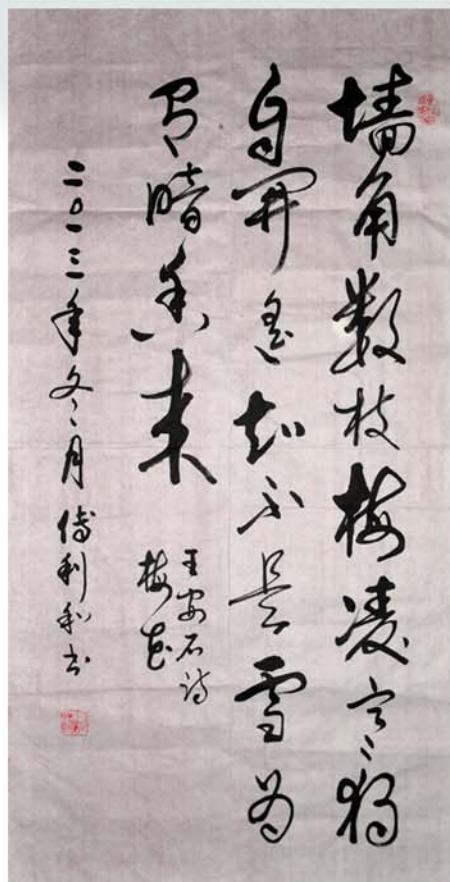 墙角数枝梅凌寒独
自开遥知不是雪为
有暗香来
王安石诗
梅花
二〇一三年冬月傅利和书